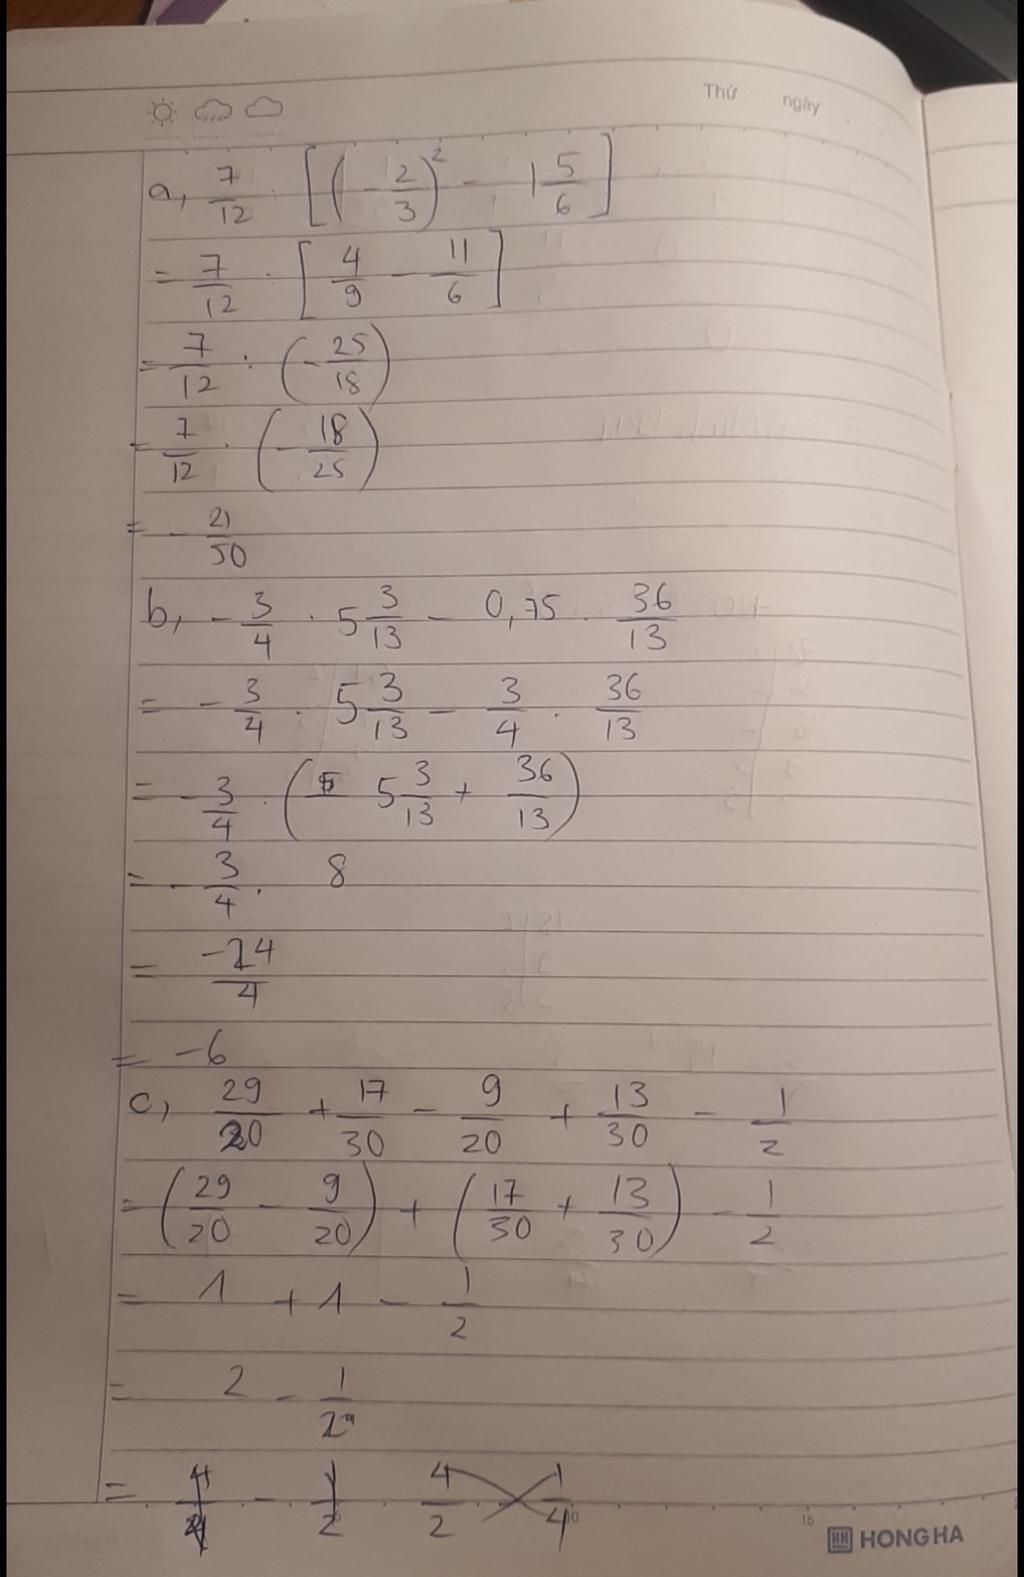 Thứ ngày
a, 7/12 : [(-2/3)² - 1 5/6]
= 7/12 : [4/9 - 11/6]
= 7/12 : (-25/18)
= 7/12 . (-18/25)
= - 21/50
b, - 3/4 . 5 3/13 - 0,75 . 36/13
= - 3/4 . 5 3/13 - 3/4 . 36/13
= - 3/4 . ( 5 3/13 + 36/13)
= - 3/4 . 8
= -24/4
= -6
c, 29/20 + 17/30 - 9/20 + 13/30 - 1/2
= (29/20 - 9/20) + (17/30 + 13/30) - 1/2
= 1 + 1 - 1/2
= 2 - 1/2
= - 1/2 4/2 1/4
15
HONG HA